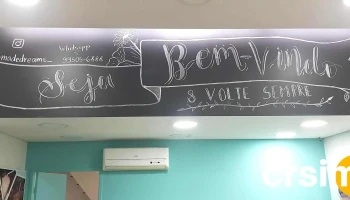 Whatsapp
madedreams_ 99505-6888
Seja Bem-Vindo
& VOLTE SEMPRE
crsim